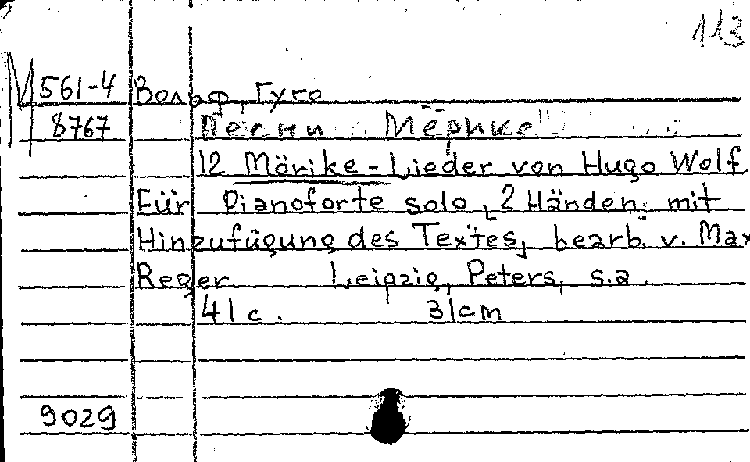 113
М 561-4 Вольф, Гуго
8767 Песни „Мёрике"
12 Mörike-Lieder von Hugo Wolf
Für Pianoforte solo, 2 Händen mit
Hinzufügung des Textes, bearb. v. Max
Reger Leipzig, Peters, s.a.
41 c. 31cm
9029